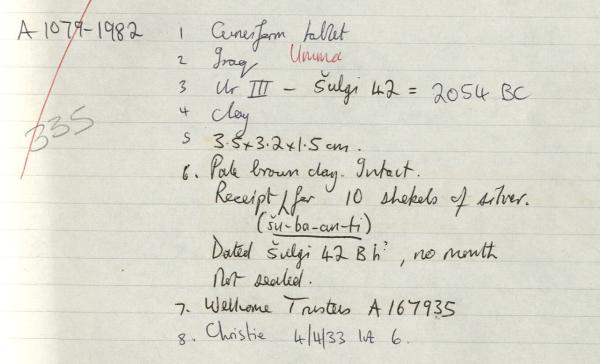 A 1079-1982 1 Cuneiform tablet
2 Iraq Umma
3 Ur III - Šulgi 42 = 2054 BC
4 Clay
335
5 3.5 x 3.2 x 1.5 cm.
6. Pale brown clay. Intact.
Receipt for 10 shekels of silver.
(šu-ba-an-ti)
Dated Šulgi 42 B h?, no month
Not sealed.
7. Wellcome Trustees A 167935
8. Christie 4/4/33 lot 6.